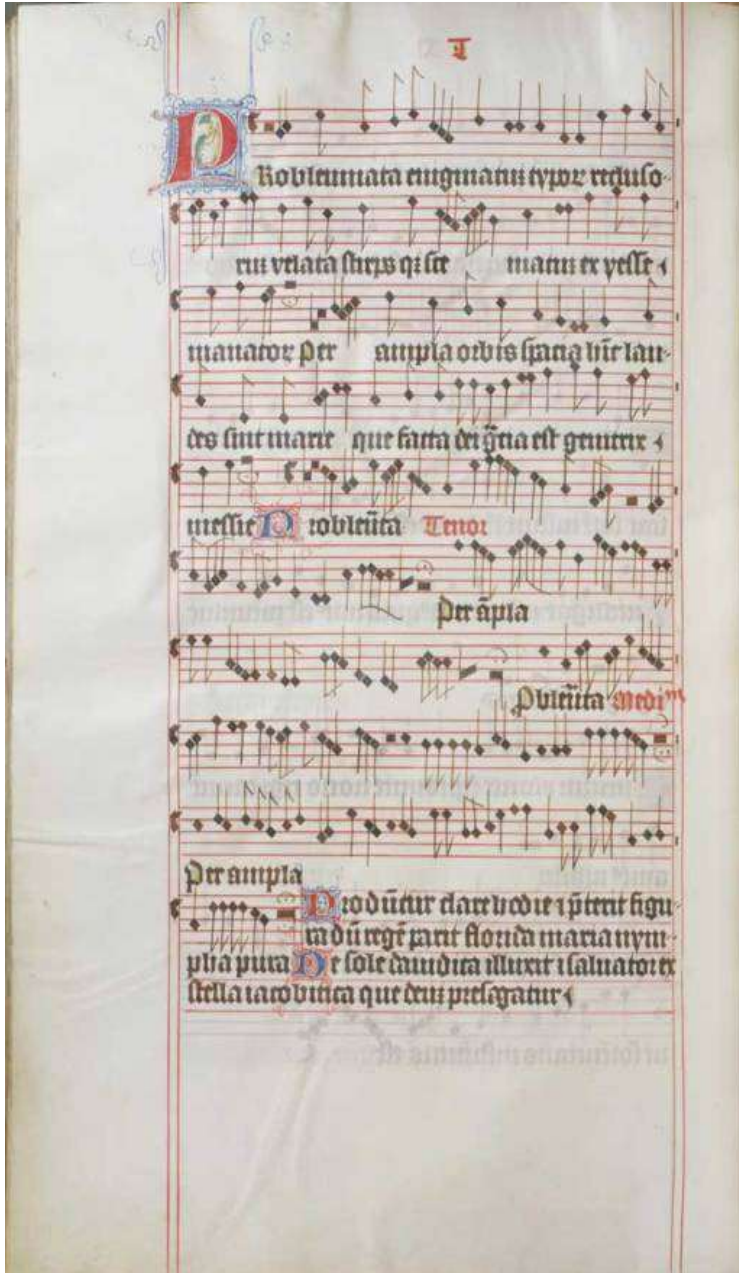 T
PRobleumata enigmatum typor recluso
rum velata stirps qz sce matum ex yesse
manator Per ampla orbis spatia hinc lau
des sint marie que facta dei gratia est genitrix
messie Probleumata Tenor
Per ampla
Pbleumata Medium
Per ampla
Producitur clare hodie preterit figu
ra dum regem parit florida maria nym
pha pura De sole davidica illuxit saluator ex
stella iacobitica que deum presagatur